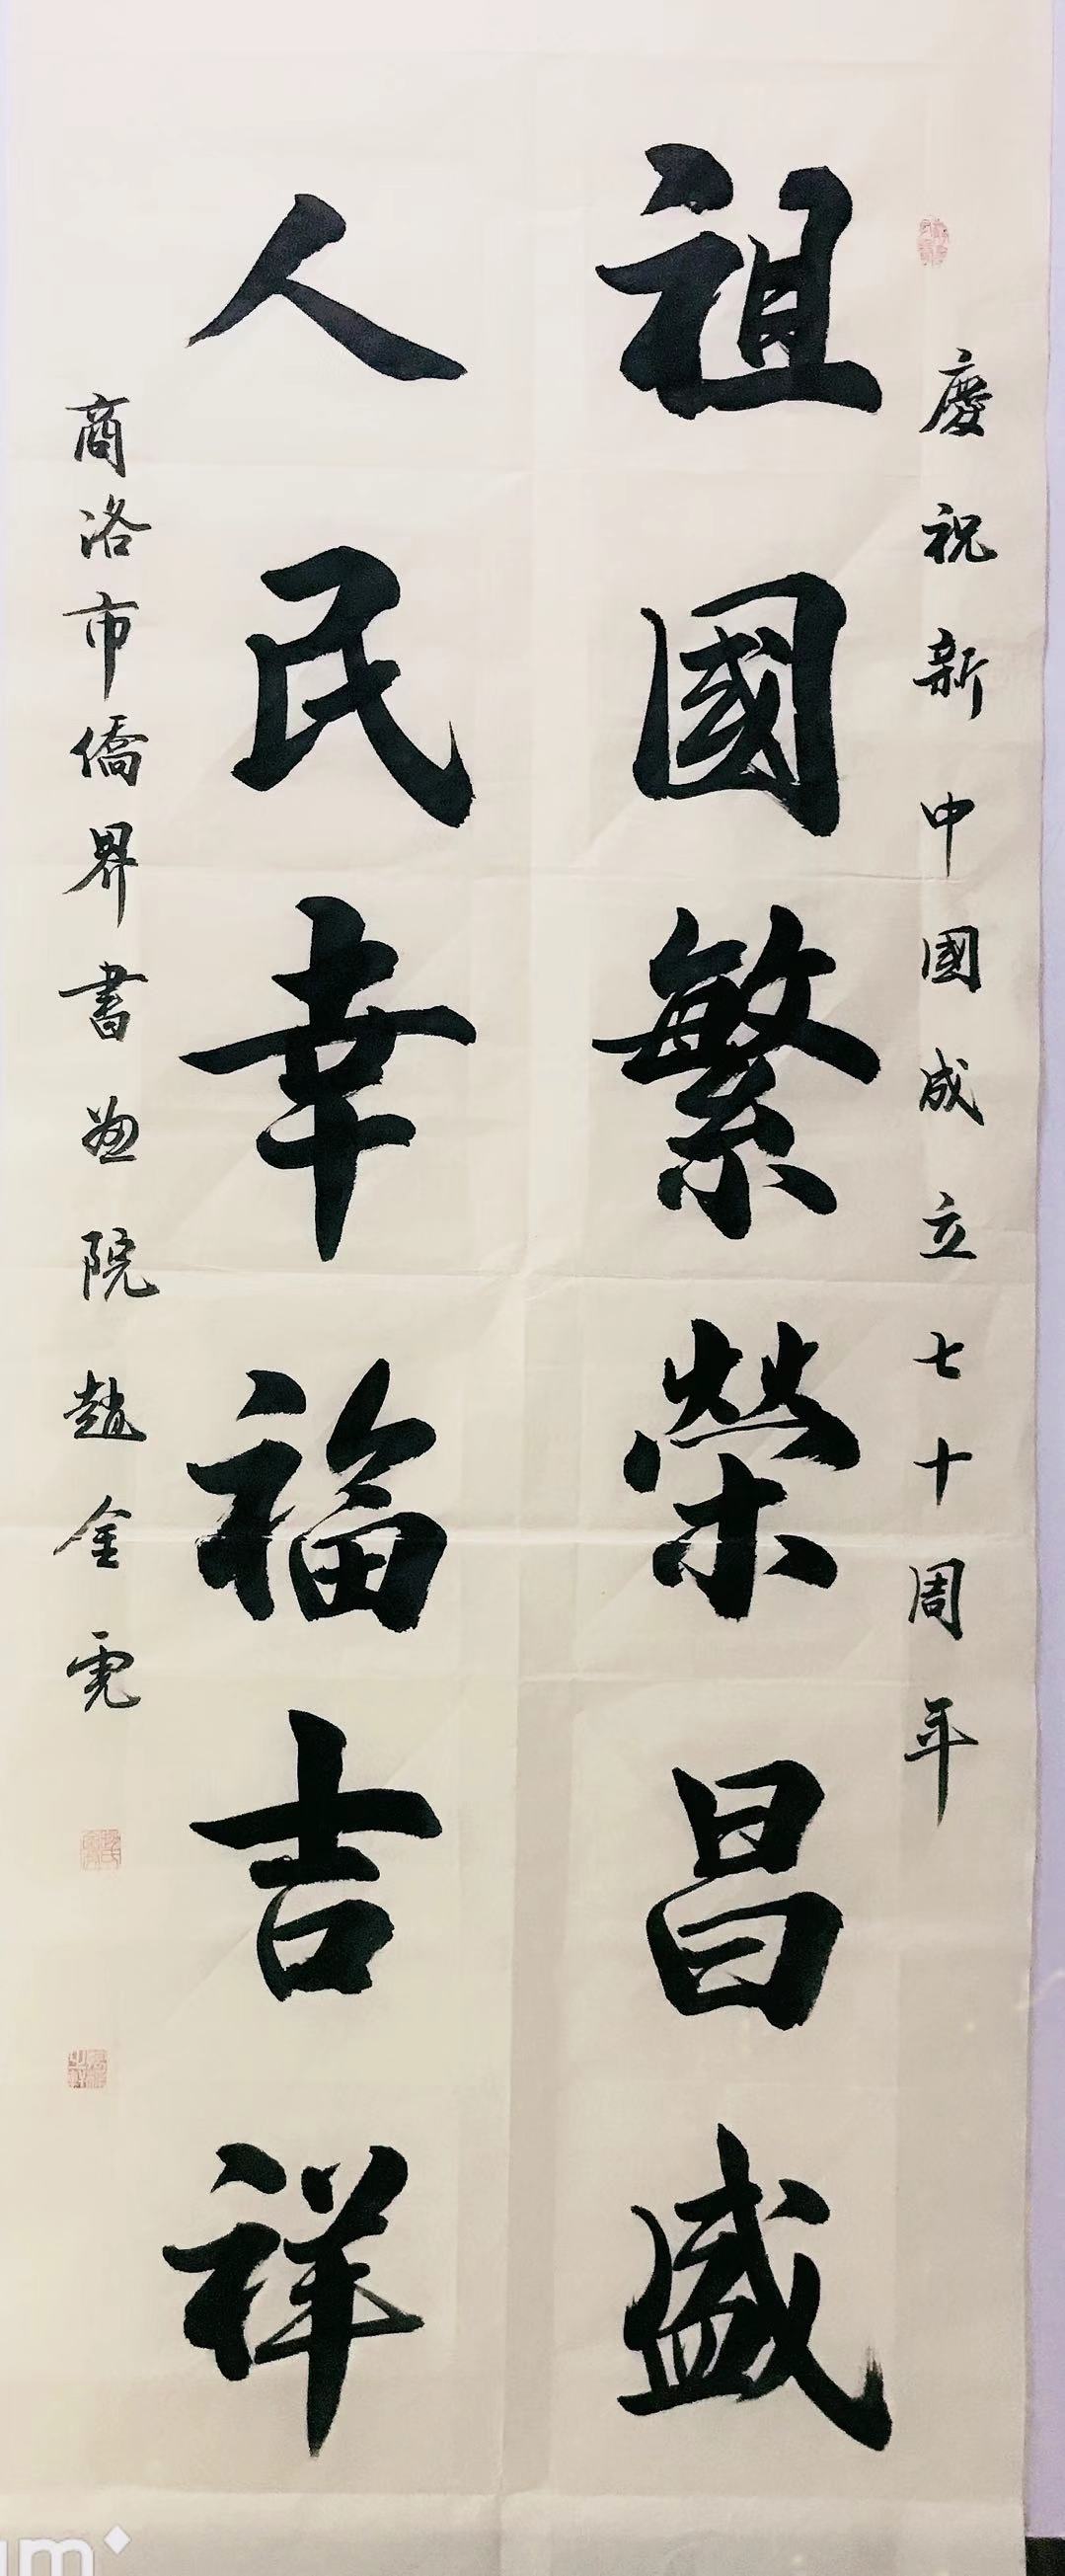 慶祝新中國成立七十周年
祖國繁榮昌盛
人民幸福吉祥
商洛市僑界書画院趙金虎
um